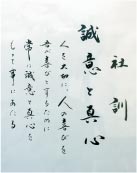 社訓
誠意と真心
人を大切に、人の喜びを
吾が喜びとするために
常に誠意と真心を
もって事にあたる